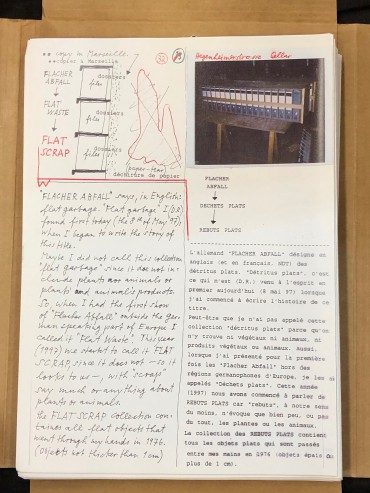 ** copy in Marseille
**copier à Marseille
FLACHER
ABFALL
FLAT
WASTE
FLAT
SCRAP
dossiers
files
dossiers
files
dossiers
files
paper-tear
déchirure de papier
Cellar
FLACHER
ABFALL
DECHETS PLATS
REBUTS PLATS
"FLACHER ABFALL" says, in English:
flat garbage. "Flat garbage" I (D.R.)
found first today (the 8th of May '97),
when I began to write the story of
this title.
Maybe I did not call this collection
"flat garbage" since it does not in-
clude plants nor animals or
plants' and animals's products.
So, when I had the first show
of "Flacher Abfall" outside the ger-
man speaking part of Europe I
called it "Flat Waste". This year
(1997) we started to call it FLAT
SCRAP, since it does not – so it
looks to us –, with "scrap"
say much or anything about
plants or animals.
the FLAT SCRAP collection con-
taines all flat objects that
went through my hands in 1976.
(Objets not thicker than 1 cm)
L'allemand "FLACHER ABFALL" désigne en
anglais (et en français, NDT) des
détritus plats. "Détritus plats", c'est
ce qui m'est (D.R.) venu à l'esprit en
premier aujourd'hui (8 mai 97) lorsque
j'ai commencé à écrire l'histoire de ce
titre.
Peut-être que je n'ai pas appelé cette
collection "détritus plats" parce qu'on
n'y trouve ni végétaux ni animaux, ni
produits végétaux ou animaux. Aussi,
lorsque j'ai présenté pour la première
fois les "Flacher Abfall" hors des
régions germanophones d'Europe, je les ai
appelés "Déchets plats". Cette année
(1997) nous avons commencé à parler de
REBUTS PLATS car "rebuts", à notre sens
du moins, n'évoque que bien peu, ou pas
du tout, les plantes ou les animaux.
La collection des REBUTS PLATS contient
tous les objets plats qui sont passés
entre mes mains en 1976 (objets épais du
plus de 1 cm).